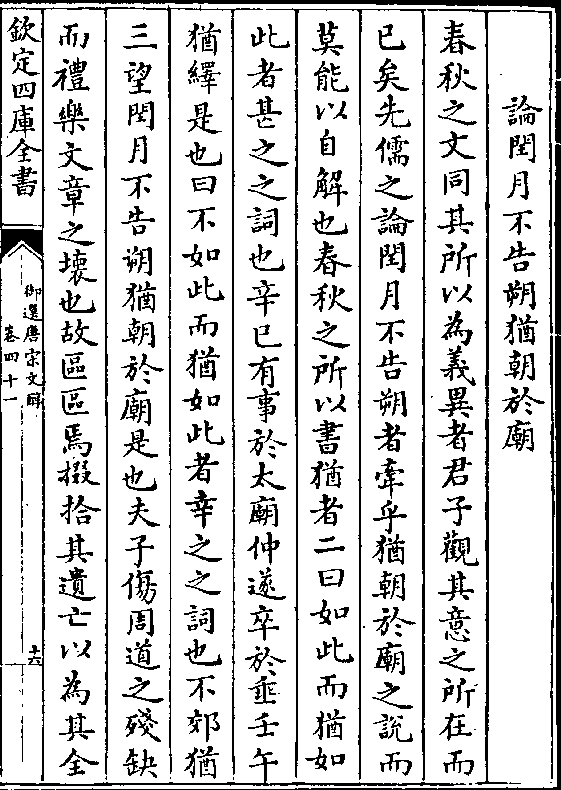 論閏月不告朔猶朝於廟
春秋之文同其所以為義異者君子觀其意之所在而
已矣先儒之論閏月不告朔者牽乎猶朝於廟之說而
莫能以自解也春秋之所以書猶者二曰如此而猶如
此者甚之之詞也辛巳有事於太廟仲遂卒於垂壬午
猶繹是也曰不如此而猶如此者幸之之詞也不郊猶
三望閏月不告朔猶朝於廟是也夫子傷周道之殘缺
而禮樂文章之壞也故區區焉掇拾其遺亡以為其全
欽定四庫全書
御選唐宋文醇
卷四十一
十六